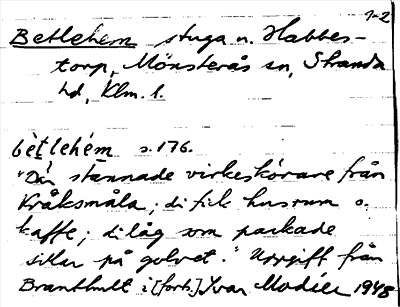 1-2
Betlehem stuga u. Habbes-
torp, Mönsterås sn, Stranda
hd, Klm. l.
bètlehém s. 176.
"Där stannade virkeskörare från
Kråksmåla; di fick husrum o.
kaffe; di låg som packade
sillar på golvet." Uppgift från
Branthult i [forts.] Ivar Modéer 1948